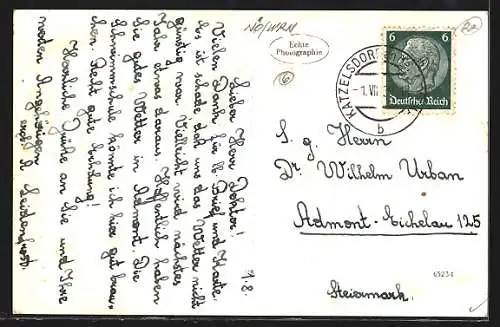 NÖ/WRN
Echte
Photographie
6
Deutsches Reich
KATZELSDORF
b
1.8.
Lieber Herr Doktor!
Vielen Dank für lb. Brief und Karte.
Es ist schade daß uns das Wetter nicht
günstig war. Vielleicht wird nächstes
Jahr etwas daraus. Hoffentlich haben
Sie gutes Wetter in Admont. Die
Schwimmschule könnte ich hier gut brau-
chen. Recht gute Erholung!
Herzliche Grüße an Sie und Ihre
werten Angehörigen
S. g. Herrn
Dr. Wilhelm Urban
Admont-Eichelau 125
Steiermark.